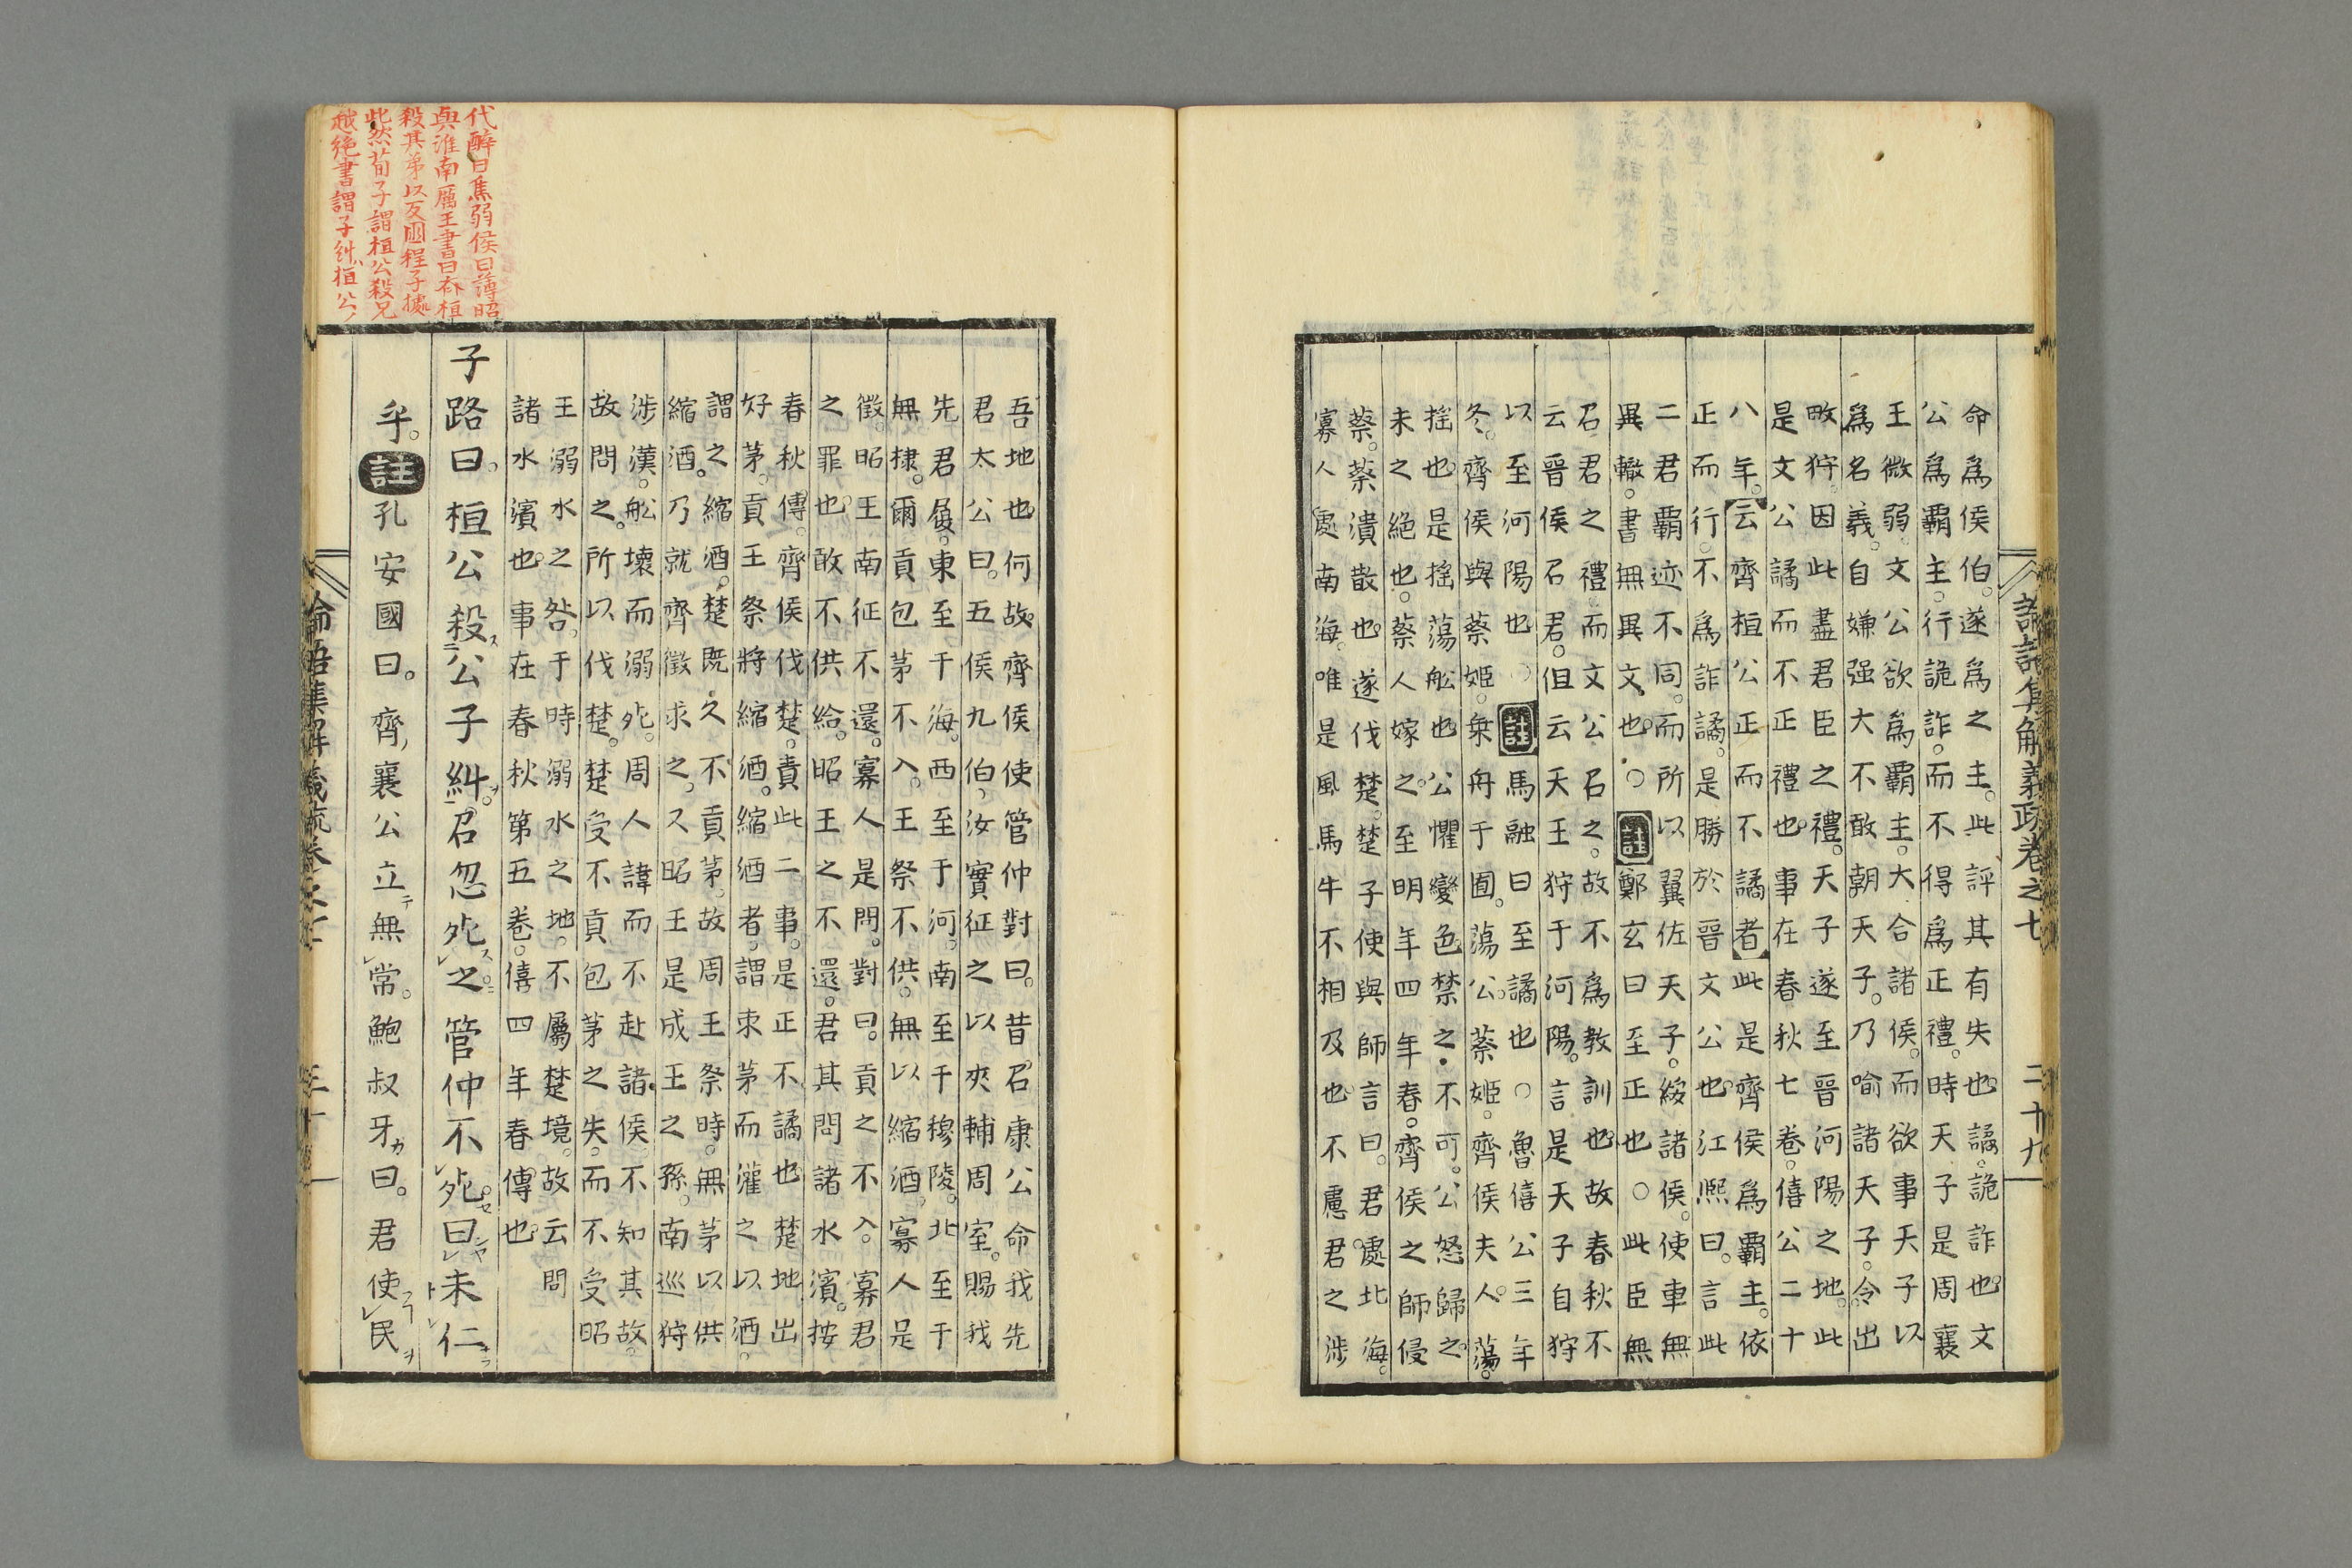 命爲侯伯。遂爲之主。此評其有失也。譎。詭詐也。文
公爲霸主。行詭詐。而不得爲正禮。時天子是周襄
王微弱。文公欲爲霸主。大合諸侯。而欲事天子以
爲名義。自嫌强大不敢朝天子。乃喻諸天子。令出
畋狩。因此盡君臣之禮。天子遂至晉河陽之地。此
是文公譎而不正禮也。事在春秋七卷。僖公二十
八年。云齊桓公正而不譎者此是齊侯爲霸主。依
正而行。不爲詐譎。是勝於晉文公也。江熙曰。言此
二君霸迹不同。而所以翼佐天子。綏諸侯。使車無
異轍。書無異文也。〇註鄭玄曰至正也〇此臣無
召君之禮。而文公召之。故不爲教訓也。故春秋不
云晉侯召君。但云天王狩于河陽。言是天子自狩
以至河陽也〇註馬融曰至譎也〇魯僖公三年
冬。齊侯與蔡姬。乗舟于囿。蕩公。蔡姬。齊侯夫人。蕩。
揺也。是揺蕩舩也。公懼變色禁之。不可。公怒歸之。
未之絕也。蔡人嫁之。至明年四年春。齊侯之師侵
蔡。蔡潰散也。遂伐楚。楚子使與師言曰。君處北海。
寡人處南海。唯是風馬牛不相及也。不慮君之涉
二十九
吾地也。何故。齊侯使管仲對曰。昔召康公命我先
君太公曰。五侯九伯。汝實征之以夾輔周室。賜我
先君履。東至于海。西至于河。南至于穆陵。北至于
無棣。爾貢包茅不入。王祭不供。無以縮酒。寡人是
徵。昭王南征不還。寡人是問。對曰。貢之不入。寡君
之罪也。敢不供給。昭王之不還。君其問諸水濱。按
春秋傳。齊侯伐楚。責此二事。是正不譎也。楚地出
好茅。貢王祭將縮酒。縮酒者。謂束茅而灌之以酒。
謂之縮酒。楚既久不貢茅。故周王祭時。無茅以供
縮酒。乃就齊徵求之。又昭王是成王之孫。南巡狩
涉漢。舩壊而溺死。周人諱而不赴諸侯。不知其故。
故問之。所以伐楚。楚受不貢包茅之失。而不受昭
王溺水之咎。于時溺水之地。不屬楚境。故云問
諸水濱也。事在春秋第五卷。僖四年春傳也。
子路曰。桓公殺公子糾。召忽死之管仲不死。曰未仁
乎。註孔安國曰。齊襄公立無常。鮑叔牙曰。君使民
代醉曰焦弱侯曰薄昭
與淮南厲王書曰齊桓
殺其弟以反國程子據
此然荀子謂桓公殺兄
越絶書謂子糾桓公ノ